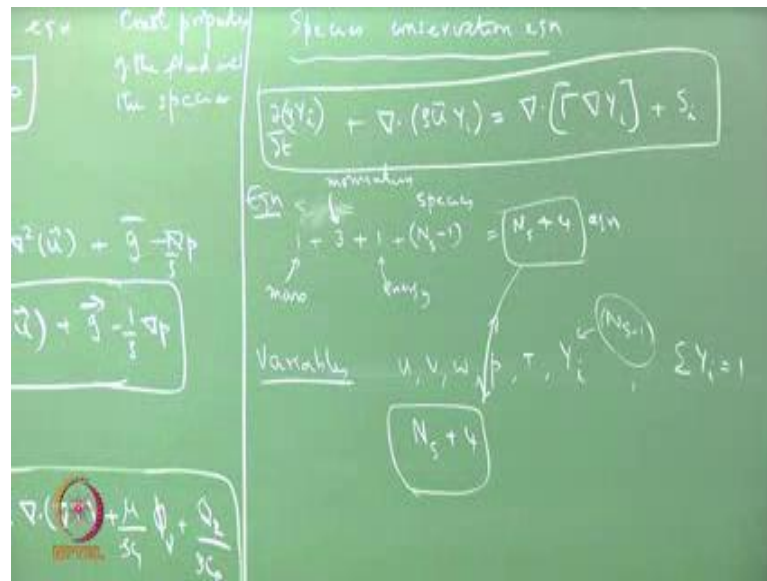 eqn
Const properties
of the fluid and
the species
∇²(ū) + g - ∇p/ρ
ū) + g⃗ - 1/ρ ∇p
∇·( ∇T) + μ/ρC φᵥ + Q/ρC
NPTEL
Species conservation eqn
∂(ρYᵢ)/∂t + ∇·(ρūYᵢ) = ∇·[Γ∇Yᵢ] + Sᵢ
momentum
Eqn species
1 + 3 + 1 + (Nₛ-1) = Nₛ + 4 eqn
mass energy
(Nₛ-1)
Variables u, v, w, p, T, Yᵢ , ΣYᵢ = 1
Nₛ + 4